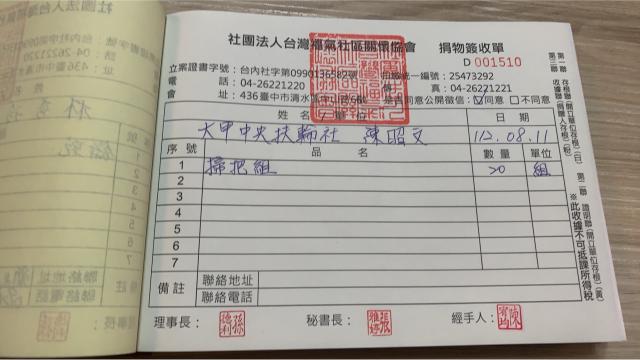 社團法人台灣福氣社區關懷協會 捐物簽收單
D 001510
立案證書字號：台內社字第0990136582號 扣繳統一編號：25473292
電 話：04-26221220 傳 真：04-26221221
會 址：436臺中市清水區中山路66 是否同意公開徵信：☑同意 □不同意
姓 名 / 單 位 日 期
大甲中央扶輪社 陳昭文 112.08.11
序號 品 名 數量 單位
1 掃把組 20 組
2
3
4
5
6
7
備註 聯絡地址
聯絡電話
理事長： 秘書長： 經手人：
第一聯 存根聯(開立單位存根)(白) 第二聯 證明聯(開立單位存根)(黃)
第三聯 收據聯(捐贈人存根)(紅)
※此收據不可抵課所得稅